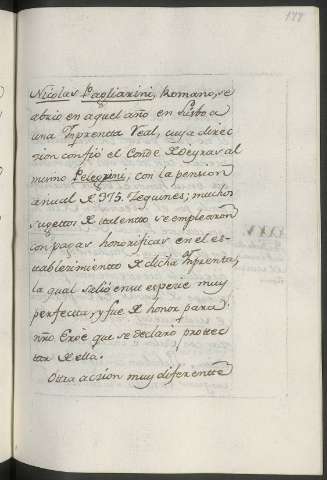 Nicolas Pagliarini, Romano, se
abrió en aquel año en Lisboa
una Imprenta Real, cuya direc
cion confió el Conde de Oeyras al
mismo Pelegrini, con la pension
anual de 375. Zequines; muchos
sugettos de talentto se emplearon
con pagas honorificas en el es-
tablezimientto de dicha Imprentta,
la qual salió en su especie muy
perfecta, y fue de honor para
nro Eroè que se declaró prottec
tor de ella.
Otra accion muy diferentte